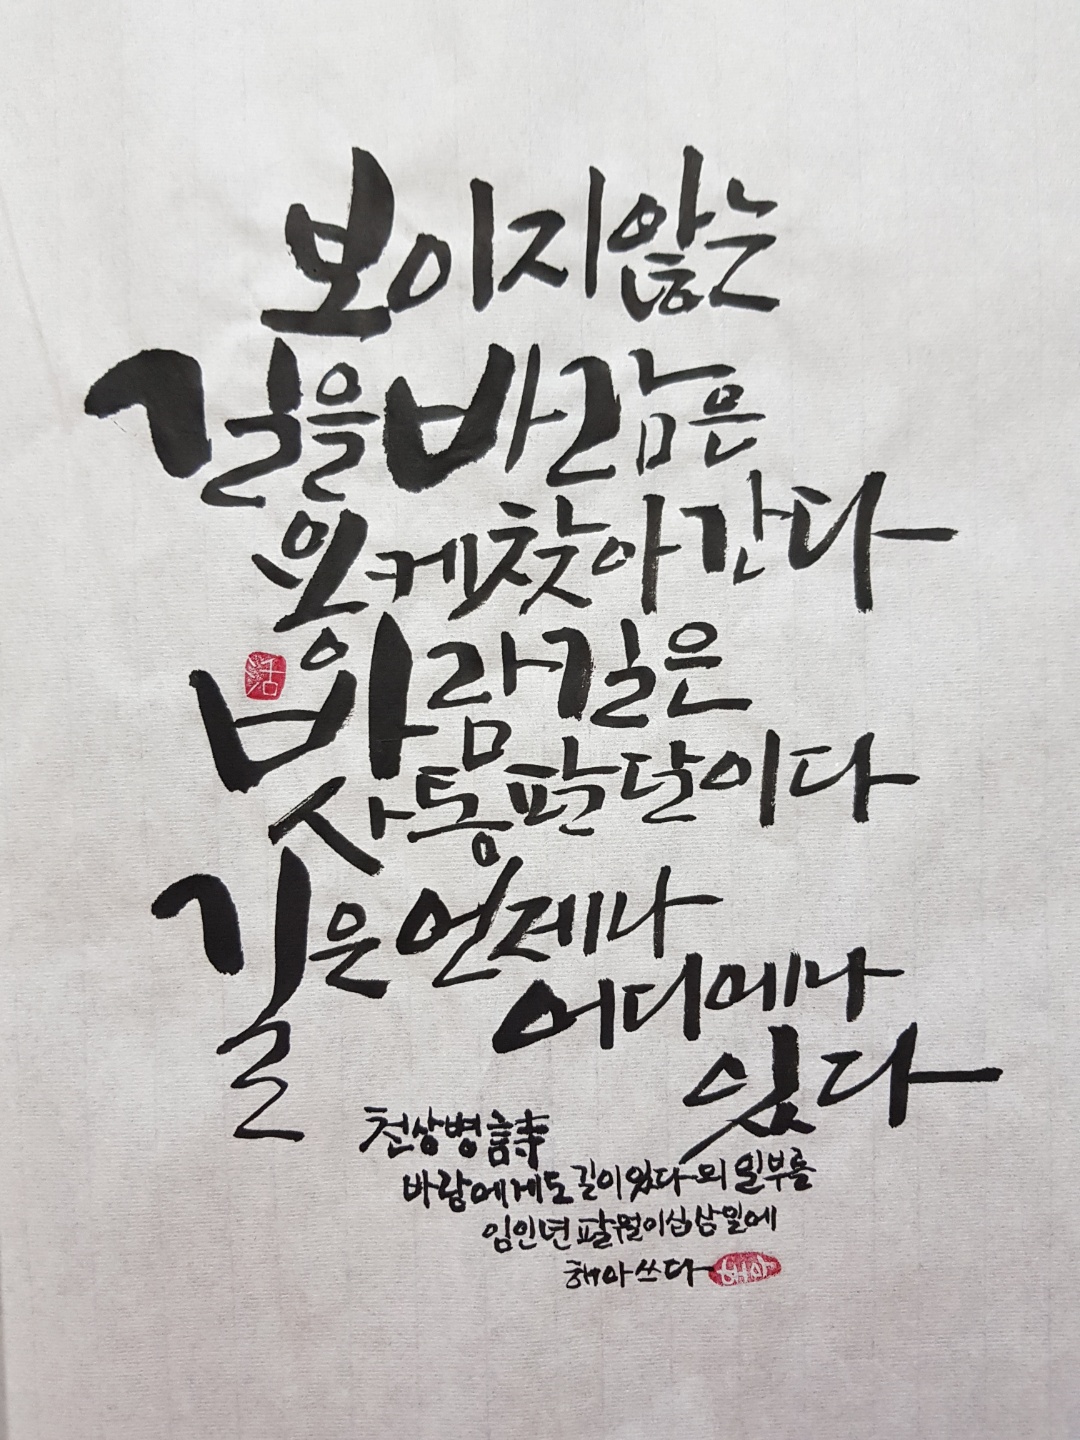 보이지 않는
길을 바람은
용케 찾아간다
바람길은
사통팔달이다
길은 언제나
어디에나
있다
천상병 詩
바람에게도 길이 있다의 일부를
임인년 팔월 이십삼일에
해아 쓰다 해아
活